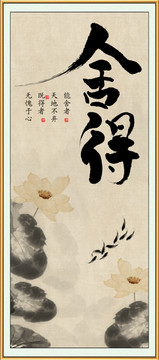 舍得
能舍者
天地不弃
既得者
无愧于心